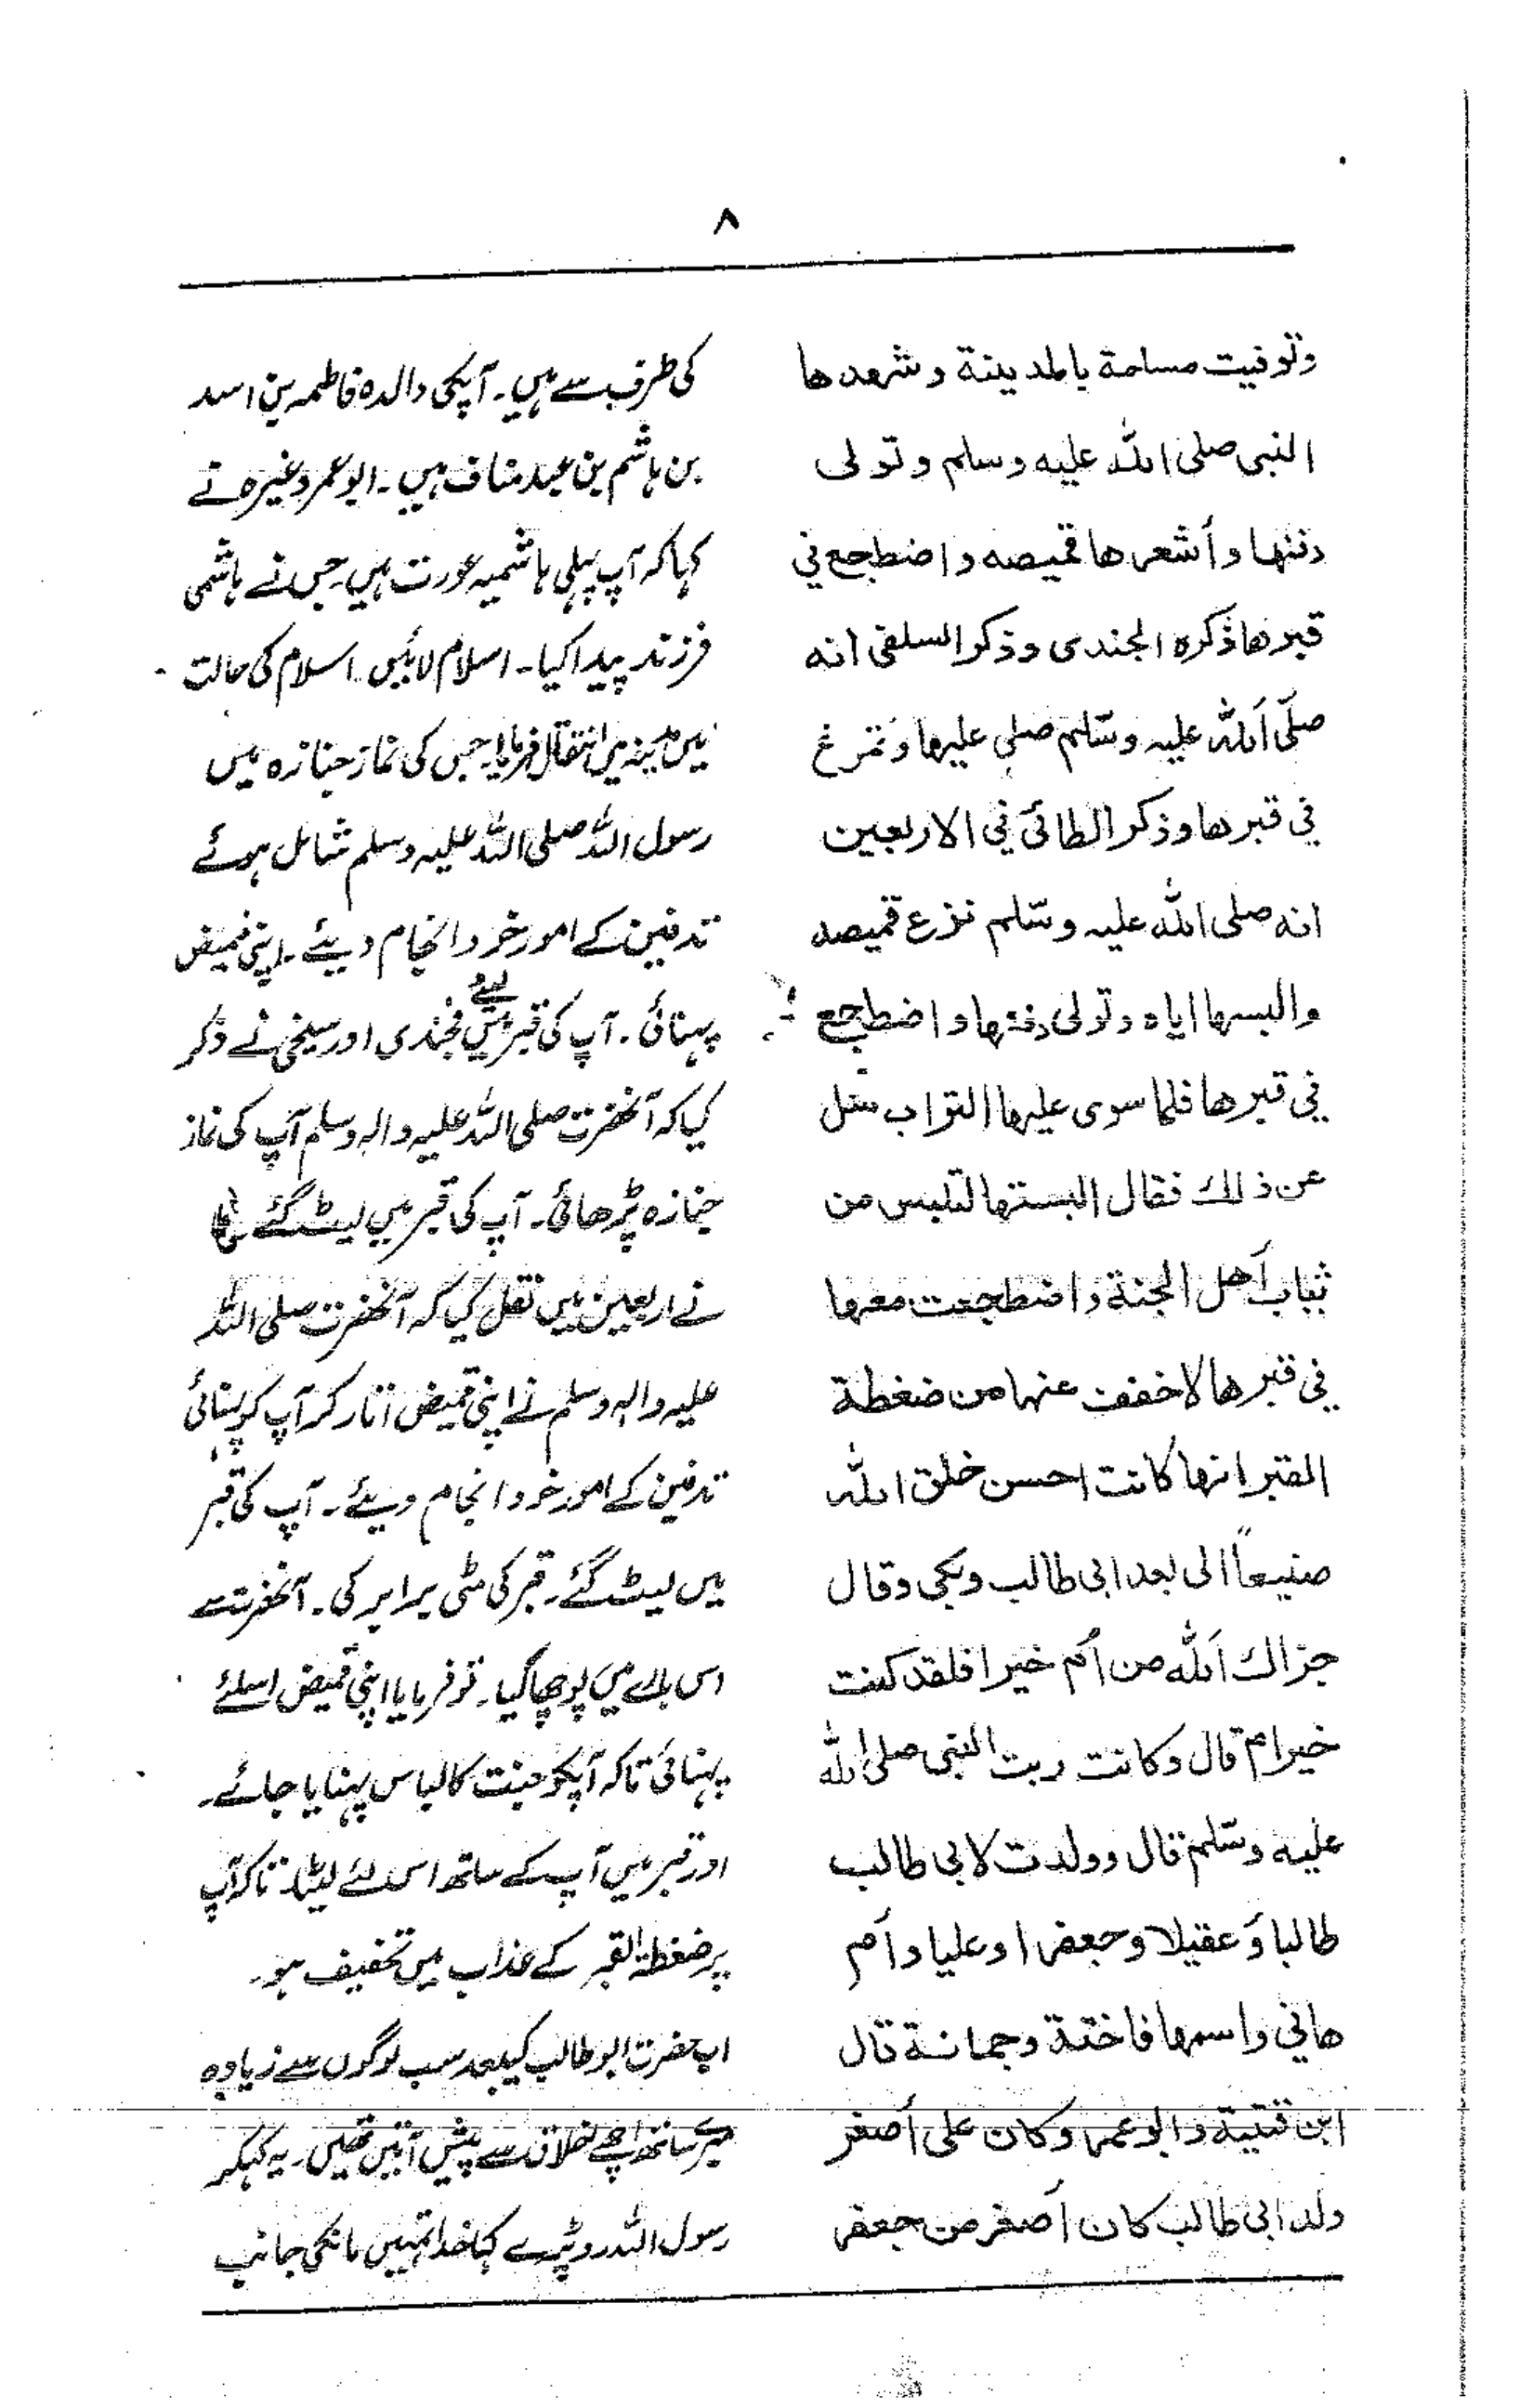 ۸
وتوفيت مسلمة بالمدينة وشهدها
النبى صلى الله عليه وسلم وتولى
دفنها وأشعرها قميصه واضطجع في
قبرها ذكره الجندى وذكر السلفى انه
صلّى اَلله عليه وسّلم صلى عليها وتمرغ
في قبرها وذكر الطائى في الاربعين
انه صلى الله عليه وسّلم نزع قميصه
والبسها اياه وتولى دفنها واضطجع
في قبرها فلما سوى عليها التراب سئل
عن ذلك فقال البستها لتلبس من
ثياب أهل الجنة واضطجعت معها
في قبرها لاخفف عنها من ضغطة
القبر انها كانت احسن خلق الله
صنيعاً الى بعد ابى طالب وبكى وقال
جزاك اَلله من اُم خيرا فلقد كنت
خيرام قال وكانت ربت النبى صلى الله
عليه وسّلم قال وولدت لابى طالب
طالبا وَعقيلا وجعفرا وعليا واَم
هاني واسمها فاختة وجمانة قال
ابن قتيبة وابو عمر وكان على أصغر
ولد ابى طالب كان أصغر من جعفر
کی طرف سے ہیں۔ آپکی والدہ فاطمہ بن اسد
بن ہاشم بن عبد مناف ہیں۔ ابو عمر وغیرہ نے
کہا کہ آپ پہلی ہاشمیہ عورت ہیں جس نے ہاشمی
فرزند پیدا کیا۔ اسلام لائیں۔ اسلام کی حالت
میں مدینہ میں انتقال فرمایا۔ جس کی نماز جنازہ میں
رسول اللہ صلی اللہ علیہ وسلم شامل ہوئے
تدفین کے امور خود انجام دیئے۔ اپنی قمیض
پہنائی۔ آپ کی قبر میں لیٹے خجندی اور سلفی نے ذکر
کیا کہ آنحضرت صلی اللہ علیہ والہ وسلم آپ کی نماز
جنازہ پڑھائی۔ آپ کی قبر میں لیٹ گئے
نے اربعین میں نقل کی کہ آنحضرت صلی اللہ
علیہ والہ وسلم نے اپنی قمیض اتار کر آپ کو پہنائی
تدفین کے امور خود انجام دیئے۔ آپ کی قبر
میں لیٹ گئے۔ قبر کی مٹی برابر کی۔ آنحضرت سے
اس بارے میں پوچھا گیا۔ تو فرمایا اپنی قمیض اسلئے
پہنائی تاکہ آپکو جنت کا لباس پہنایا جائے۔
اور قبر میں آپ کے ساتھ اس لئے لیٹا۔ تاکہ آپ
پر ضغطۃ القبر کے عذاب میں تخفیف ہو۔
آپ حضرت ابو طالب کیبعد سب لوگوں سے زیادہ
میرے ساتھ اچھے اخلاق سے پیش آتیں تھیں۔ یہ کہکر
رسول اللہ رو پڑے کہا خدا تمہیں مانکی جانب